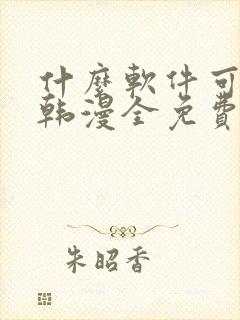 什麼軟件可
韩漫全免費
朱昭香